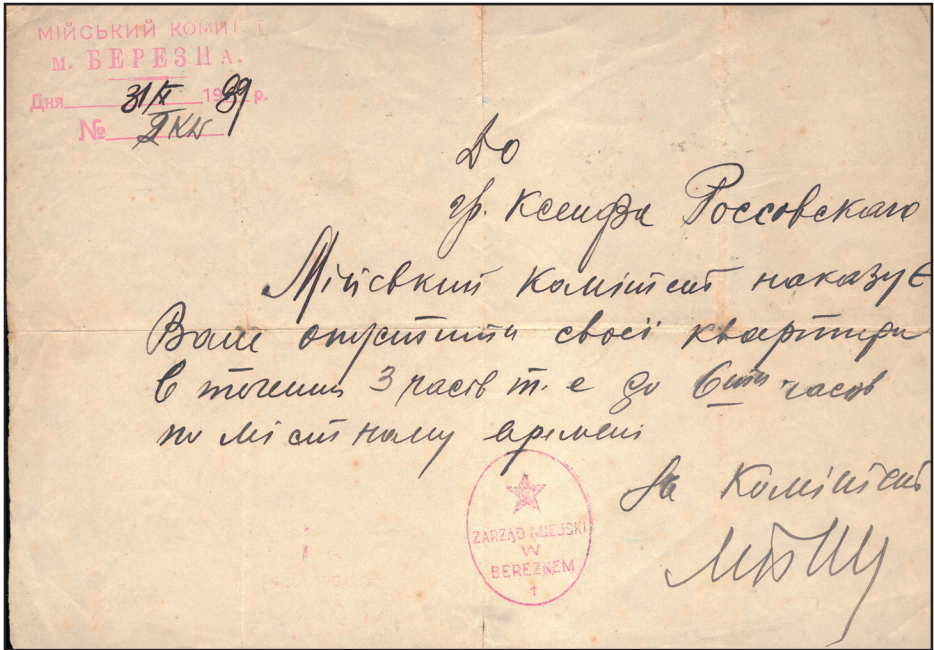 МІЙСЬКИЙ КОМИТ
м. БЕРЕЗНА.
Дня 31/X 1939 р.
№
До
гр. Ксенфа Россовскаго
Мійський Комітет наказує
Вам опустити своєї квартири
в течении 3 часов т. е до 6ти часов
по містному времені
За Комітет
ZARZĄD MIEJSKI
W
BEREZNEM
1